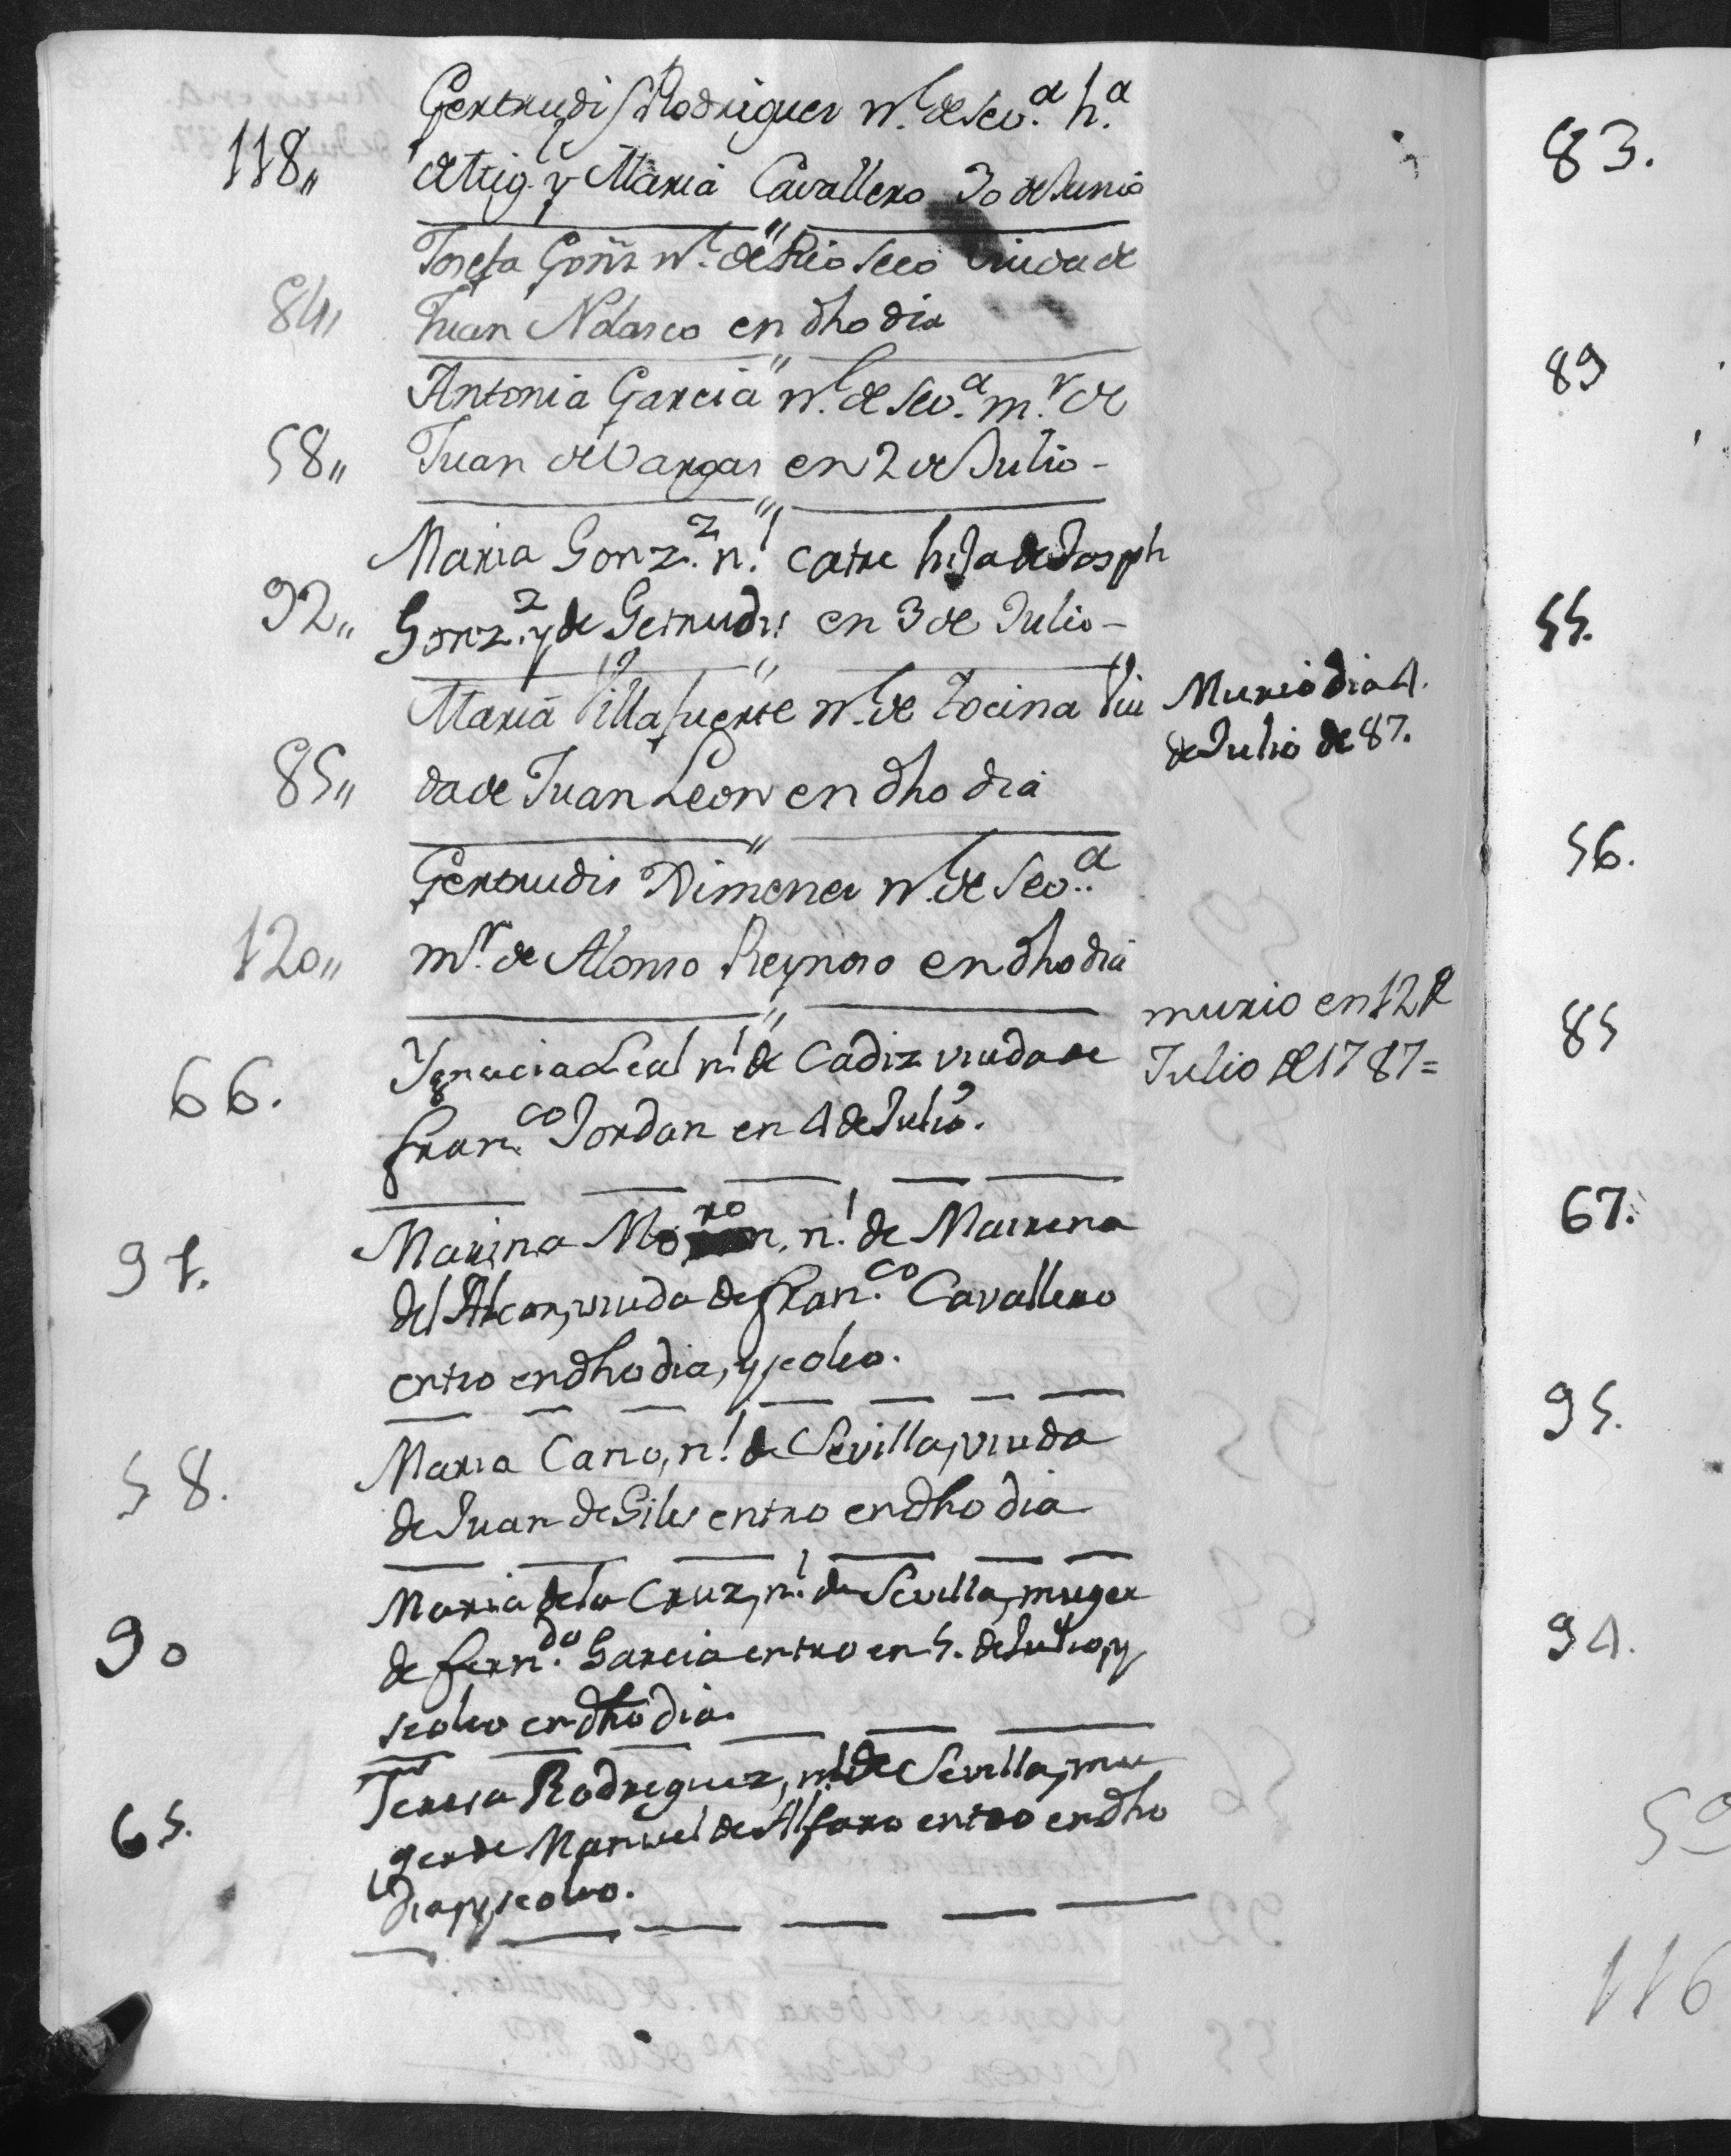 Gertrudis Rodriguez n.l de Sev.a h.a
118,, de Mig. y Maria Cavallero 30 de Junio
Josefa Gonz n.l de Rio seco Viuda de
84,, Juan Nolasco en dho dia
Antonia Garcia n.l de Sev.a m.r de
58,, Juan de Vargas en 2 de Julio -
Maria Gonz.z n.l Catre hija de Josph
92,, Gonz.z y de Getrudis en 3 de Julio -
Maria Villafuerte n.l de Tocina Viu
Murio dia 4.
de Julio de 87.
85,, da de Juan Leon en dho dia
Gertrudis Ximenez n.l de Sev.a
120,, m.r de Alonso Reynoso en dho dia
murio en 12 R
Julio de 1787=
66. Ygnacia Leal n.l de Cadiz viuda de
Fran.co Jordan en 4 de Julio.
Marina Moron, n.l de Mairena
91. del Alcor, viuda de Fran.co Cavallero
entro en dho dia, y se oleo.
Maria Cano, n.l de Sevilla, viuda
58. de Juan de Giles entro en dho dia
Maria de la Cruz, n.l de Sevilla, muger
90 de Fern.do Garcia entro en 5. de Julio, y
se oleo en dho dia.
Teresa Rodriguez, n.l de Sevilla, mu
65. ger de Manuel de Alfaro entro en dho
dia, y se oleo.
83.
89
55.
56.
85
67.
95.
94.
59
116